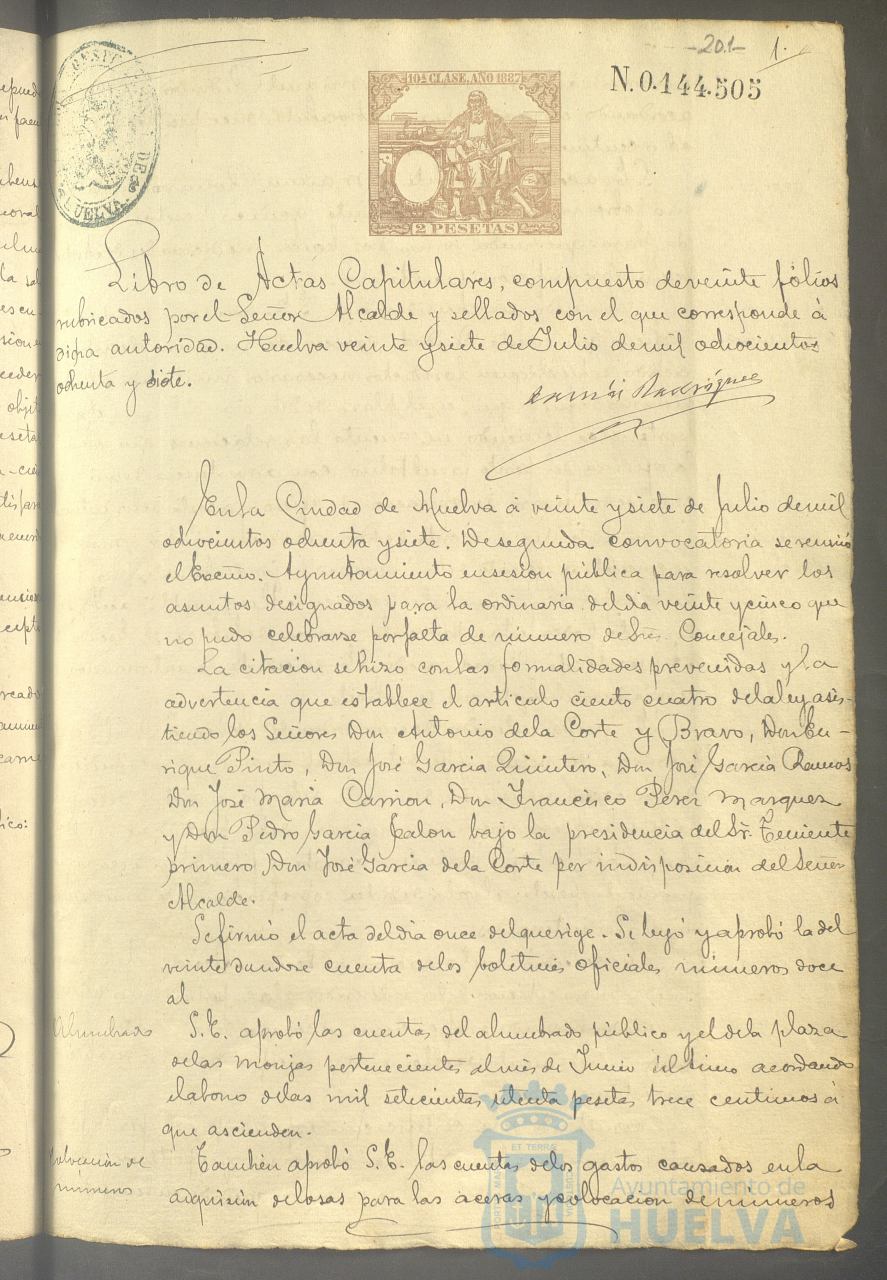 -201- 1.
10ª CLASE, AÑO 1887
N.0.144.505
2 PESETAS
HUELVA
Libro de Actas Capitulares, compuesto de veinte fólios
rubricados por el Señor Alcalde y sellados con el que corresponde á
dicha autoridad. Huelva veinte y siete de Julio de mil ochocientos
ochenta y siete.
Ramón Rodríguez
En la Ciudad de Huelva á veinte y siete de Julio de mil
ochocientos ochenta y siete. De segunda convocatoria se reunió
el Excmo. Ayuntamiento en sesion pública para resolver los
asuntos designados para la ordinaria del dia veinte y cinco que
no pudo celebrarse por falta de número de Sres. Concejales.
La citacion se hizo con las formalidades prevenidas y la
advertencia que establece el articulo ciento cuatro de la ley asis-
tiendo los Señores Don Antonio de la Corte y Bravo, Don En-
rique Pinto, Don José Garcia Quintero, Don José Garcia Ramos
Don José Maria Carrion, Don Francisco Perez Marquez
y Don Pedro Garcia Jalon bajo la presidencia del Sr. Teniente
primero Don José Garcia de la Corte por indisposicion del Señor
Alcalde.
Se firmó el acta del dia once del que rige. Se leyó y aprobó la del
veinte dandose cuenta de los boletines oficiales números doce
al
Alumbrado
S.E. aprobó las cuentas del alumbrado público y el de la plaza
de las Monjas pertenecientes al mes de Junio último acordando
el abono de las mil setecientas setenta pesetas trece centimos á
que ascienden.
Colocacion de
números
Tambien aprobó S.E. las cuentas de los gastos causados en la
adquision de losas para las aceras y colocacion de números
ET TERRA
Ayuntamiento de
HUELVA